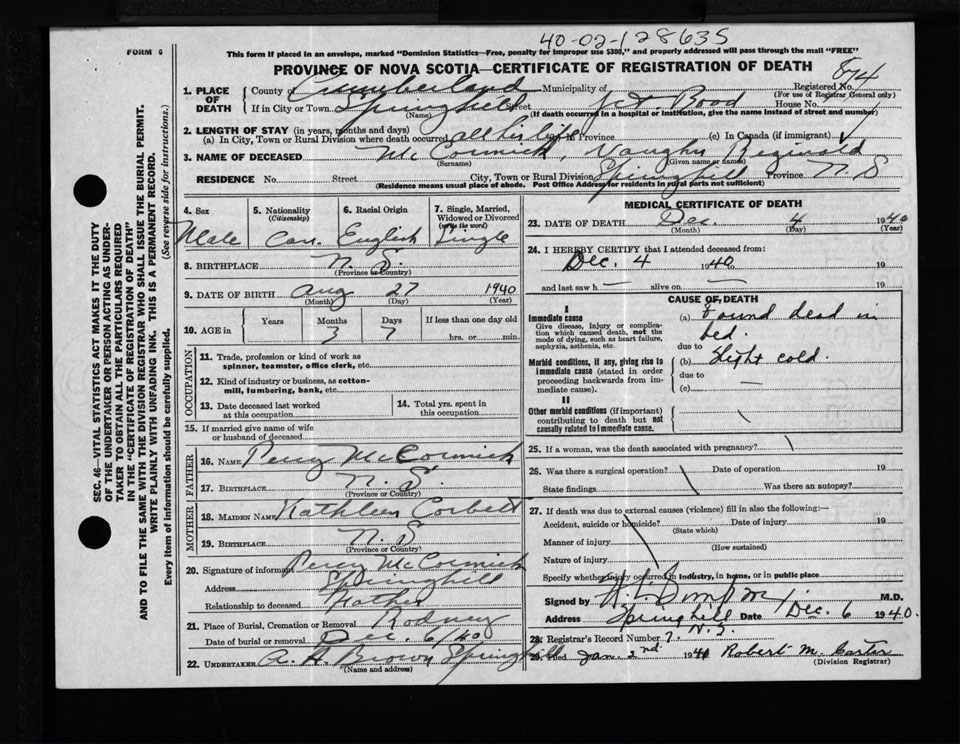 40-02-128635
FORM 6
This form if placed in an envelope, marked "Dominion Statistics—Free, penalty for improper use $300," and properly addressed will pass through the mail "FREE"
PROVINCE OF NOVA SCOTIA—CERTIFICATE OF REGISTRATION OF DEATH
Registered No. 874
(For use of Registrar General only)
1. PLACE OF DEATH
County of Cumberland Municipality of
If in City or Town Springhill Street Road House No.
(Name) (If death occurred in a hospital or institution, give the name instead of street and number)
2. LENGTH OF STAY (in years, months and days)
(a) In City, Town or Rural Division where death occurred all his life Province (c) In Canada (if immigrant)
3. NAME OF DECEASED McCormick, Vaughn Reginald
(Surname) (Given name or names)
RESIDENCE No. Street City, Town or Rural Division Springhill Province N.S
(Residence means usual place of abode. Post Office Address for residents in rural parts not sufficient)
4. Sex
Male
5. Nationality (Citizenship)
Can.
6. Racial Origin
English
7. Single, Married, Widowed or Divorced (write the word)
Single
8. BIRTHPLACE N.S.
(Province or Country)
9. DATE OF BIRTH Aug 27 1940
(Month) (Day) (Year)
10. AGE in Years Months Days If less than one day old
3 7 hrs. or min.
OCCUPATION
11. Trade, profession or kind of work as spinner, teamster, office clerk, etc.
12. Kind of industry or business, as cotton-mill, lumbering, bank, etc.
13. Date deceased last worked at this occupation
14. Total yrs. spent in this occupation
15. If married give name of wife or husband of deceased
FATHER
16. NAME Percy McCormick
17. BIRTHPLACE N.S.
(Province or Country)
MOTHER
18. MAIDEN NAME Kathleen Corbett
19. BIRTHPLACE N.S
(Province or Country)
20. Signature of informant Percy McCormick
Address Springhill
Relationship to deceased Father
21. Place of Burial, Cremation or Removal Rodney
Date of burial or removal Dec. 6/40
22. UNDERTAKER A. H. Brown Springhill
(Name and address)
MEDICAL CERTIFICATE OF DEATH
23. DATE OF DEATH Dec. 4 1940
(Month) (Day) (Year)
24. I HEREBY CERTIFY that I attended deceased from:
Dec. 4 1940 19
and last saw h — alive on — 19
CAUSE OF DEATH
I
Immediate cause
Give disease, injury or complication which caused death, not the mode of dying, such as heart failure, asphyxia, asthenia, etc.
(a) Found dead in bed.
due to
Morbid conditions, if any, giving rise to immediate cause (stated in order proceeding backwards from immediate cause).
(b) Slight cold.
due to
(c) —
II
Other morbid conditions (if important) contributing to death but not causally related to immediate cause.
25. If a woman, was the death associated with pregnancy?
26. Was there a surgical operation? Date of operation 19
State findings Was there an autopsy?
27. If death was due to external causes (violence) fill in also the following:—
Accident, suicide or homicide? Date of injury 19
(State which)
Manner of injury
(How sustained)
Nature of injury
Specify whether injury occurred in industry, in home, or in public place
Signed by M.D.
Address Springhill Date Dec. 6 1940.
N.S.
28. Registrar's Record Number 7.
29. Filed Jan. 2nd 1941 Robert M. Carter
(Division Registrar)
SEC. 46—VITAL STATISTICS ACT MAKES IT THE DUTY OF THE UNDERTAKER OR PERSON ACTING AS UNDERTAKER TO OBTAIN ALL THE PARTICULARS REQUIRED IN THE "CERTIFICATE OF REGISTRATION OF DEATH" AND TO FILE THE SAME WITH THE DIVISION REGISTRAR WHO SHALL ISSUE THE BURIAL PERMIT.
WRITE PLAINLY WITH UNFADING INK. THIS IS A PERMANENT RECORD.
Every item of information should be carefully supplied. (See reverse side for instructions.)